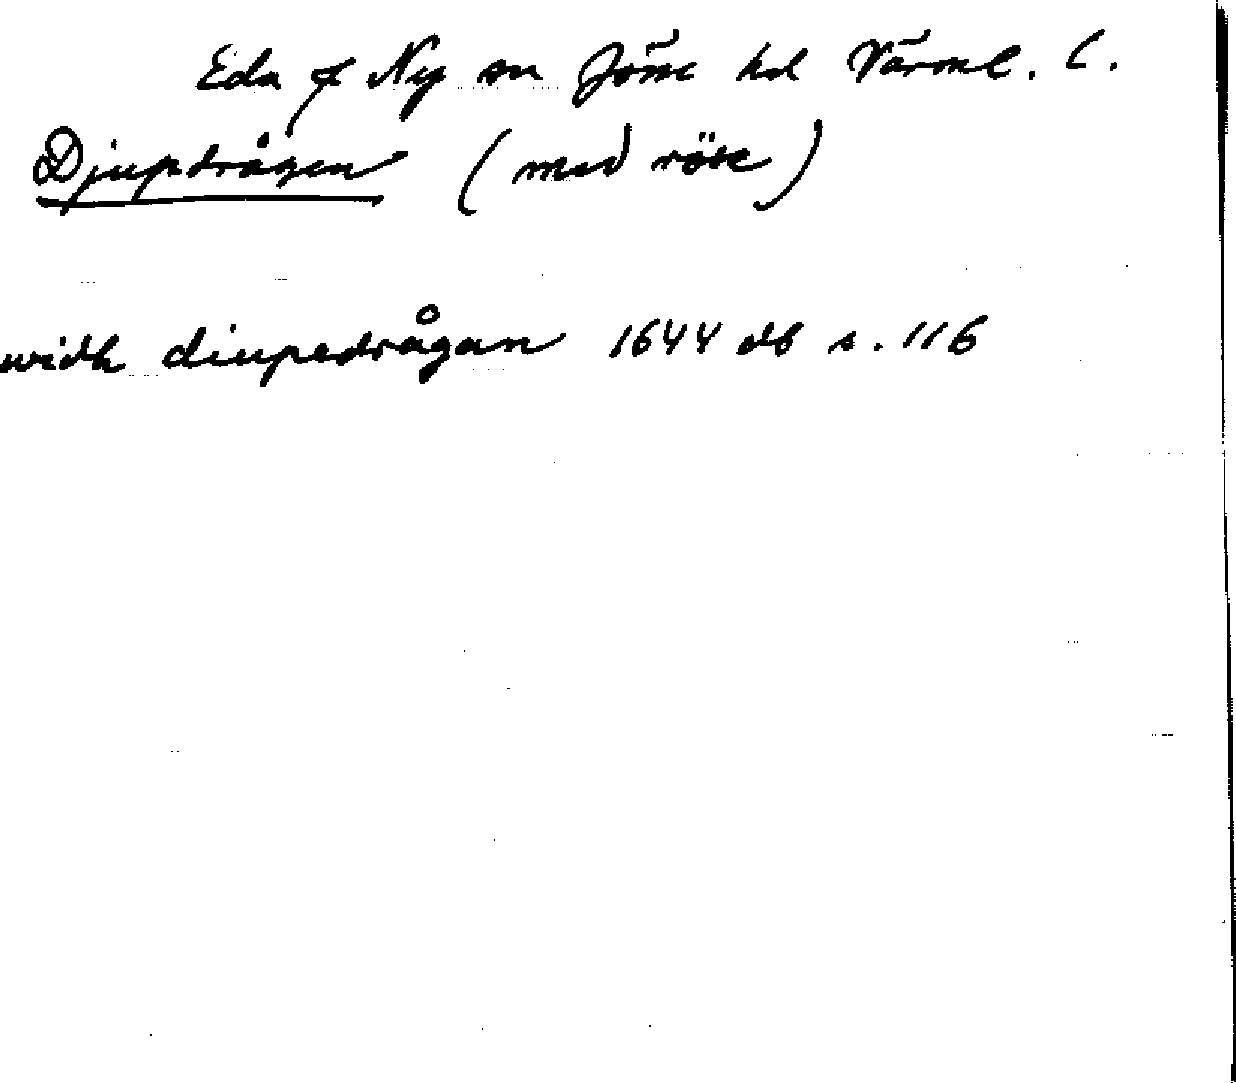 Eda f Ny sn Jösse hd Värml. l.
Djupdrågen (med röse)
widh diupedrågan 1644 db s. 116